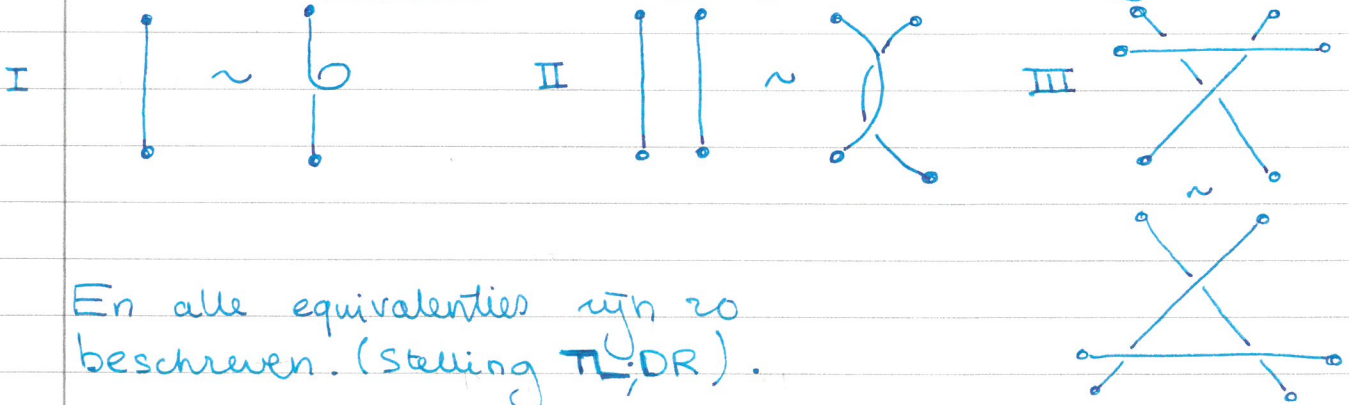 I ~ II ~ III
~
En alle equivalenties zijn zo
beschreven. (Stelling TL;DR).